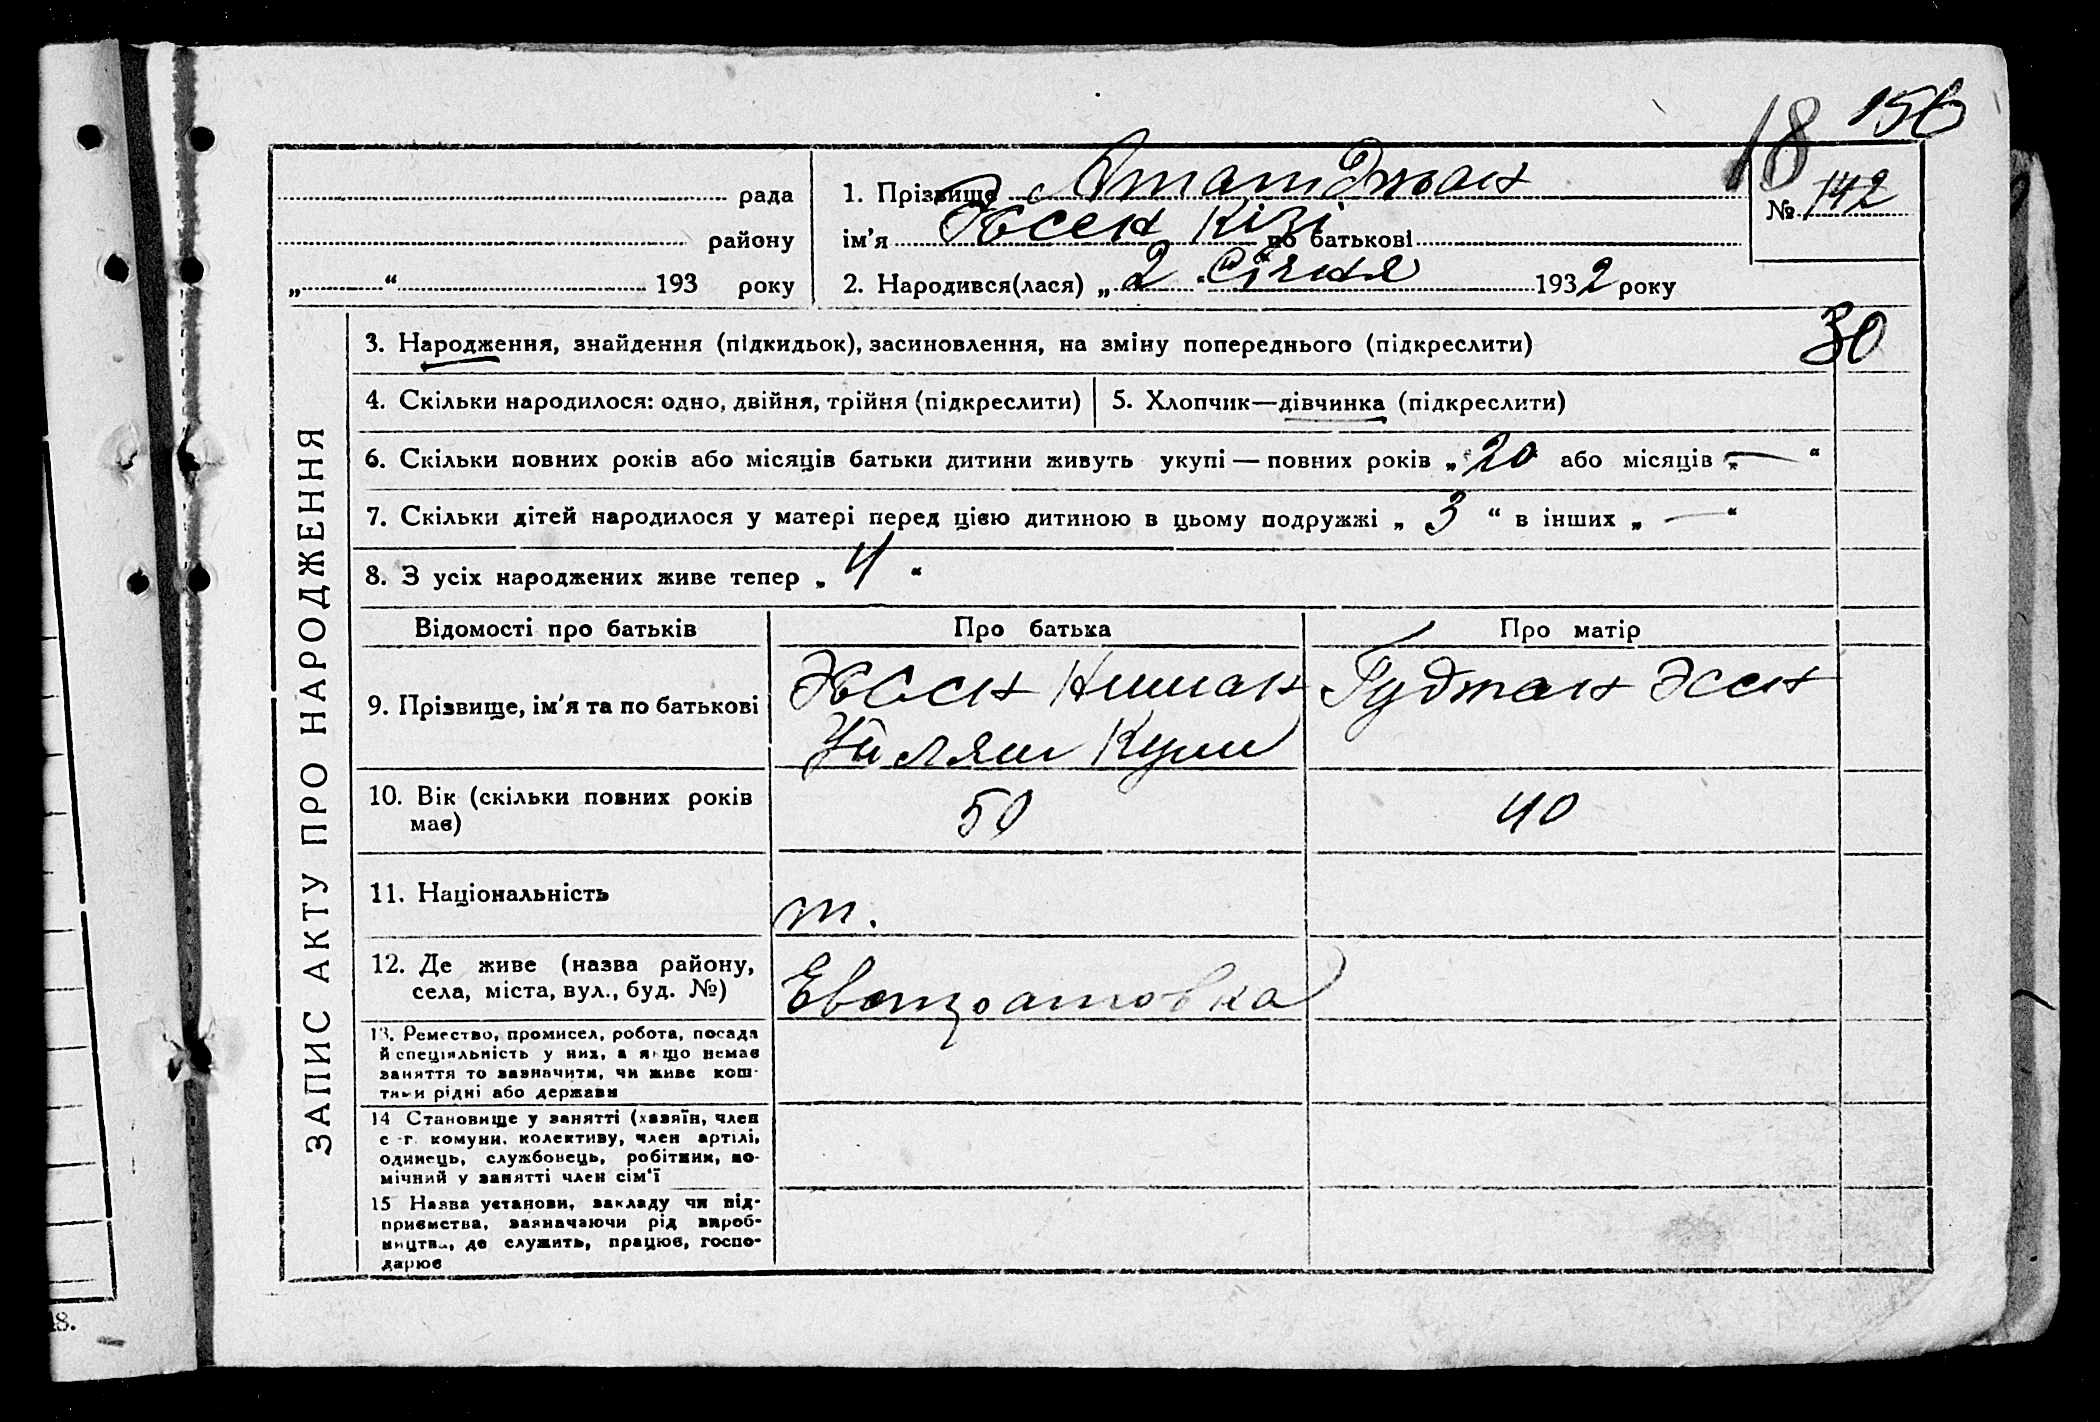 156
18
рада
району
„ “ 193 року
1. Прізвище Аматджан
№ 142
ім’я Эссен Кізі по батькові
2. Народився(лася) „ 2 “ Січня 1932 року
30
ЗАПИС АКТУ ПРО НАРОДЖЕННЯ
3. Народження, знайдення (підкидьок), засиновлення, на зміну попереднього (підкреслити)
4. Скільки народилося: одно, двійня, трійня (підкреслити)
5. Хлопчик—дівчинка (підкреслити)
6. Скільки повних років або місяців батьки дитини живуть укупі — повних років „ 20 або місяців „ — “
7. Скільки дітей народилося у матері перед цією дитиною в цьому подружжі „ 3 “ в інших „ — “
8. З усіх народжених живе тепер „ 4 “
Відомості про батьків
Про батька
Про матір
9. Прізвище, ім’я та по батькові
Кули
Эссен
10. Вік (скільки повних років
має)
50
40
11. Національність
т.
12. Де живе (назва району,
села, міста, вул., буд. №)
13. Ремество, промисел, робота, посада
й спеціяльність у них, а якщо немає
заняття то зазначити, чи живе кош-
тами рідні або держави
14 Становище у занятті (хазяїн, член
с-г. комуни, колективу, член артілі,
одинець, службовець, робітник, по-
мічний у занятті член сім’ї
15 Назва установи, закладу чи під-
приємства, зазначаючи рід вироб-
ництва, де служить, працює, госпо-
дарює
18.